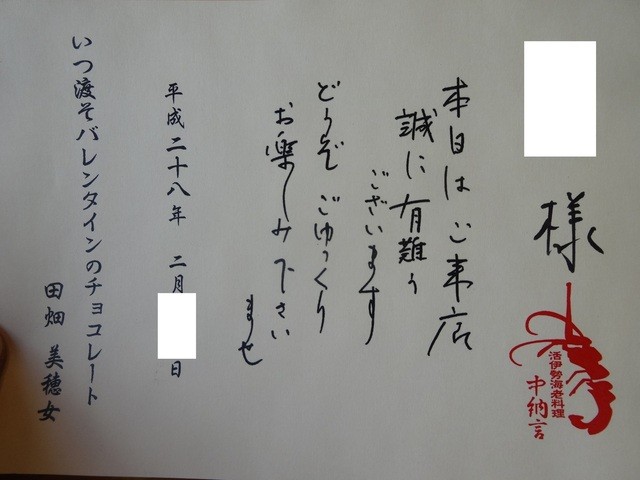 様
活伊勢海老料理
中納言
本日はご来店
誠に有難う
ございます
どうぞごゆっくり
お楽しみ下さい
ませ
平成二十八年 二月 日
いつ渡そバレンタインのチョコレート
田畑 美穂女